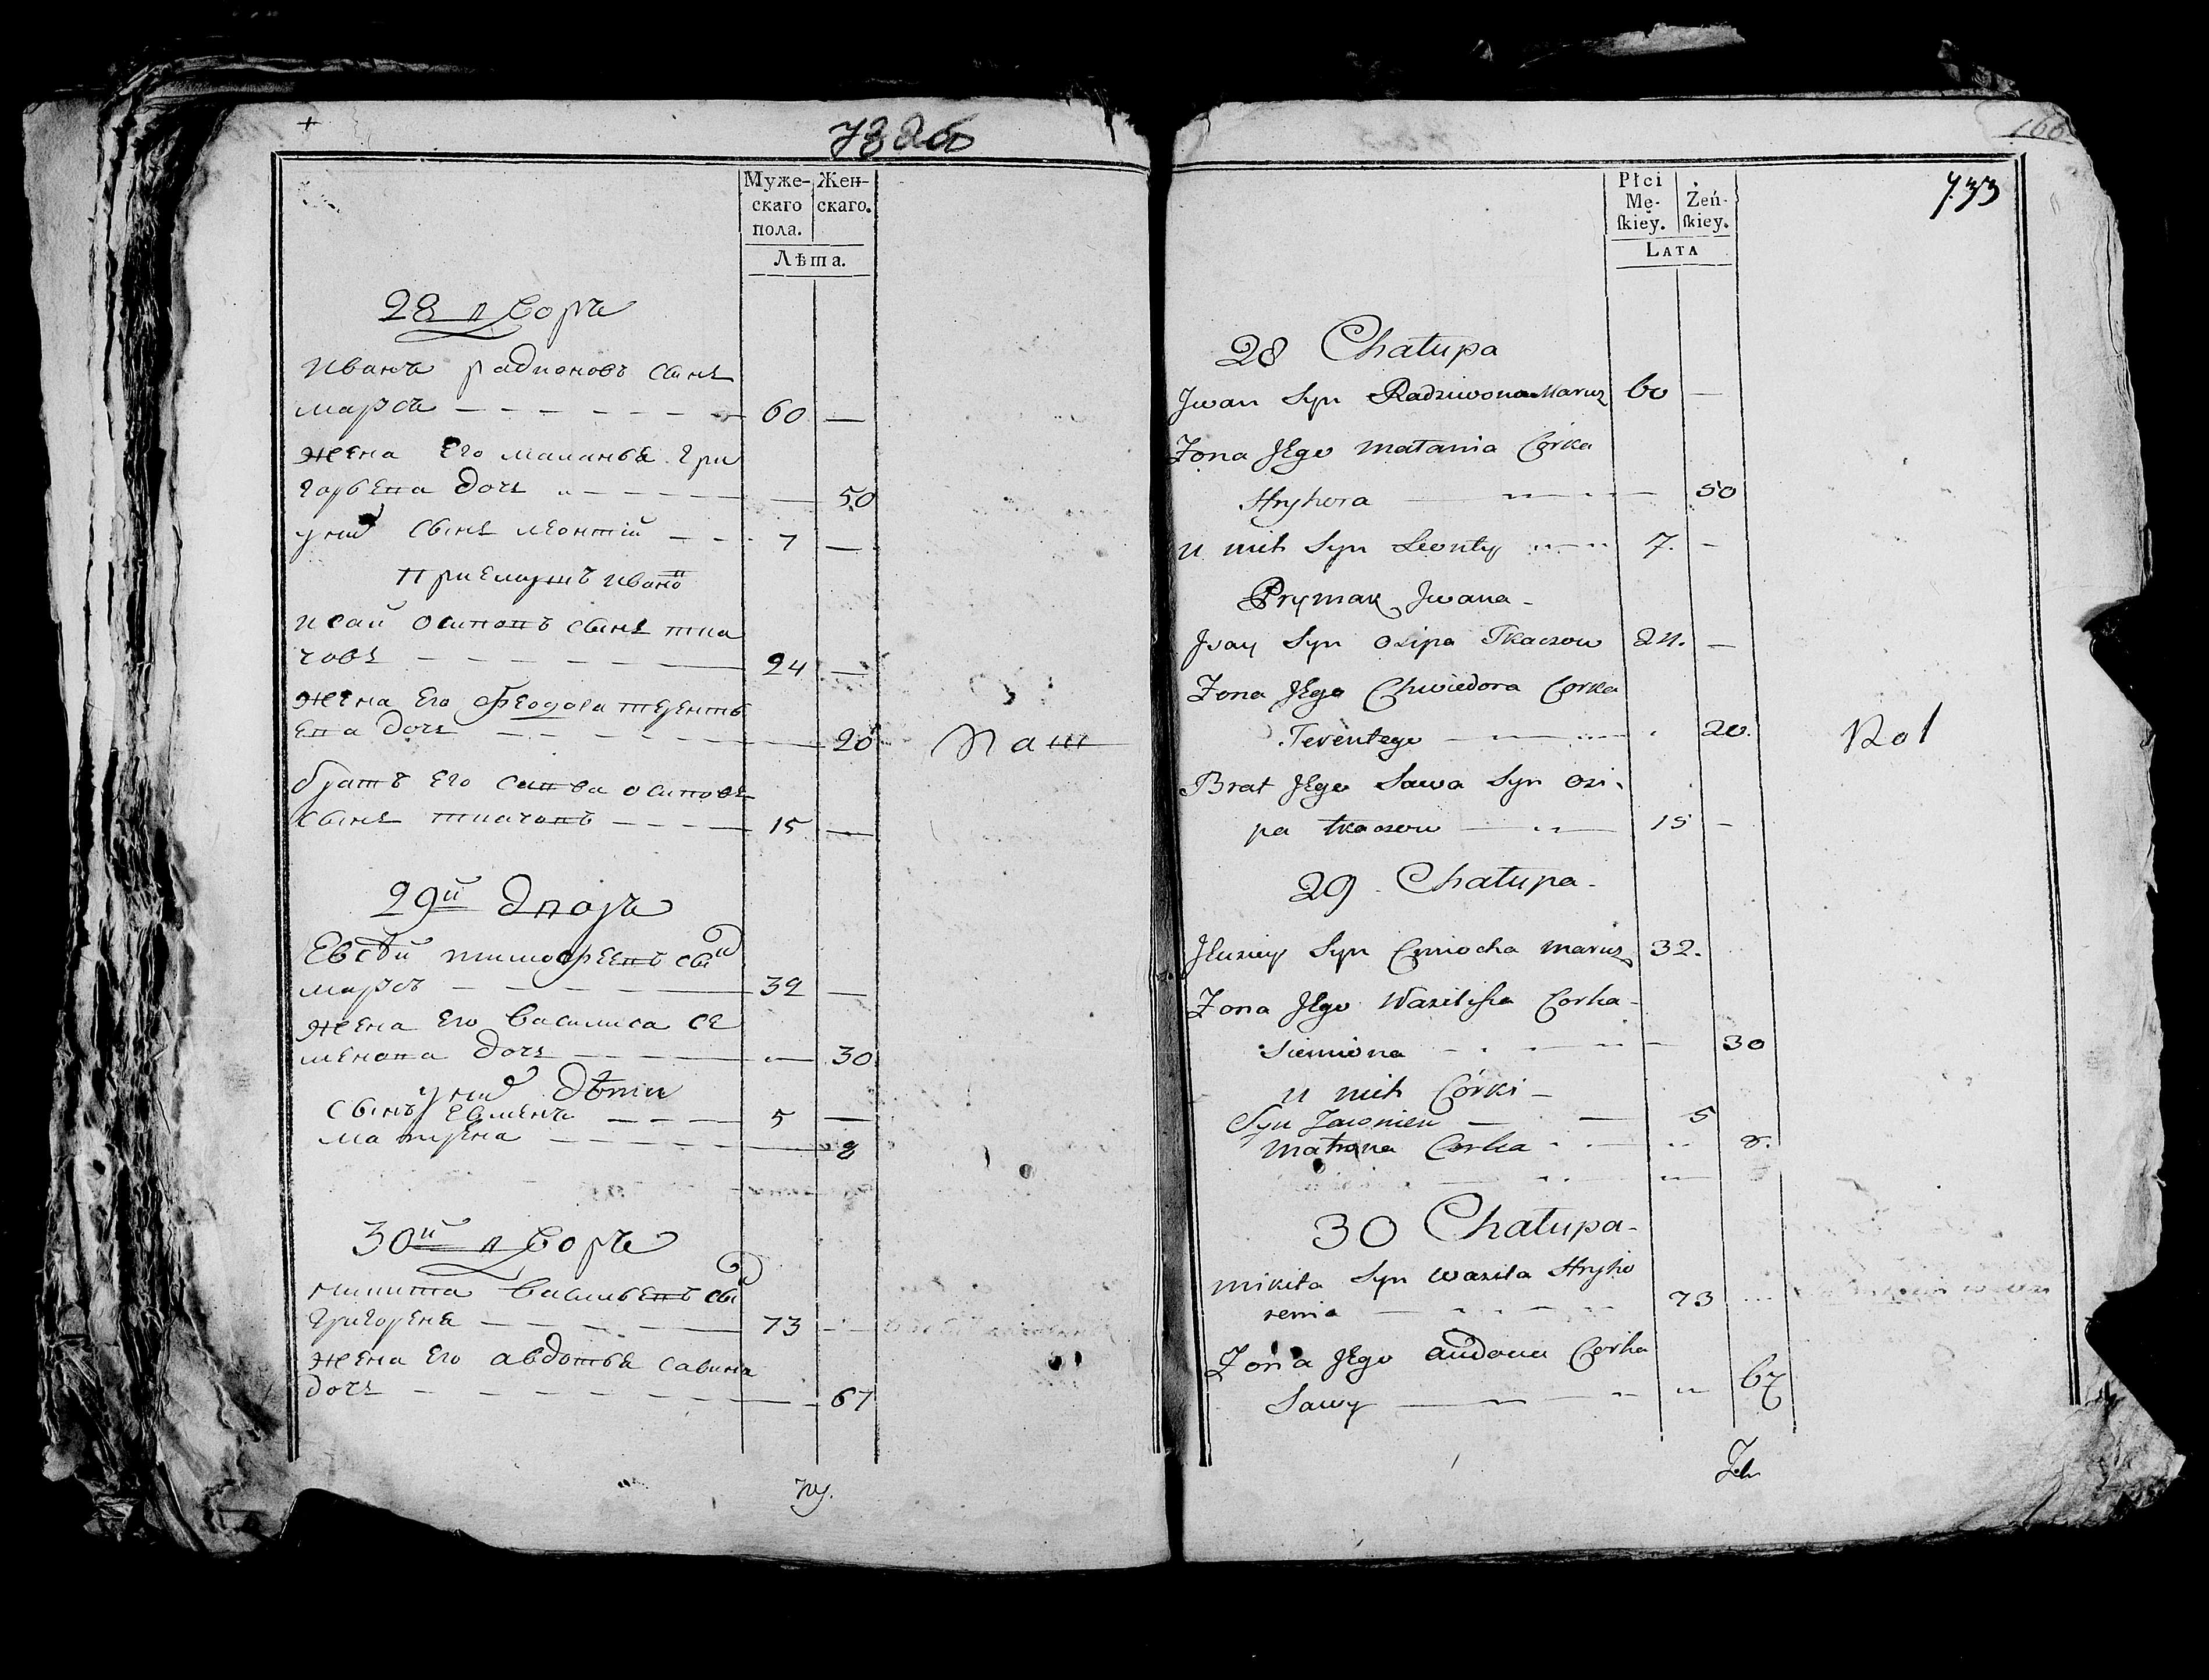 732об
Муже-
скаго
пола.
Жен-
скаго.
Лѣта.
28 дворъ
Иванъ радионовъ сынъ
марсъ — 60 —
жена Его маланья гри
горьева дочь — 50
у них сынъ леонтій — 7 —
Приемышъ ивано
исай осиповъ сынъ тка
човъ — 24 —
жена Его Феодора теренть
ева дочь — 20
братъ Его савва осиповъ
сынъ ткачовъ — 15 —
29й дворъ
Евсѣй тимофеевъ сы
марсъ — 32 —
жена Его василиса се
менова дочь — 30
у них дѣти
сынъ Евменъ — 5 —
матрена — 8
30й дворъ
никита васильевъ сы
григореня — 73 —
жена Его авдотья савина
дочь — 67
166
733
Płci
Mę-
ſkiey.
Żeń-
ſkiey.
LATA
28 Chałupa
Jwan Syn Radziwona Marus 60 —
Zona Jego Małania Córka
Hryhora — 50
u nich Syn Leonty 7. —
Prymak Jwana
Jsay Syn Osipa Tkaczow 24. —
Zona Jego Chwiedora Corka
Terentego — 20.
Brat Jego Sawa Syn Osi
pa tkaczow — 15 —
29 Chałupa
Syn marus 32.
Zona Jego Wasilisa Corka
Siemiona — 30
u nich Córki
Syn — 5
Matrona Corka — 8.
30 Chałupa
Mikita Syn Wasila Hryho
renia — 73
Zona Jego Corka
Sawy — 67